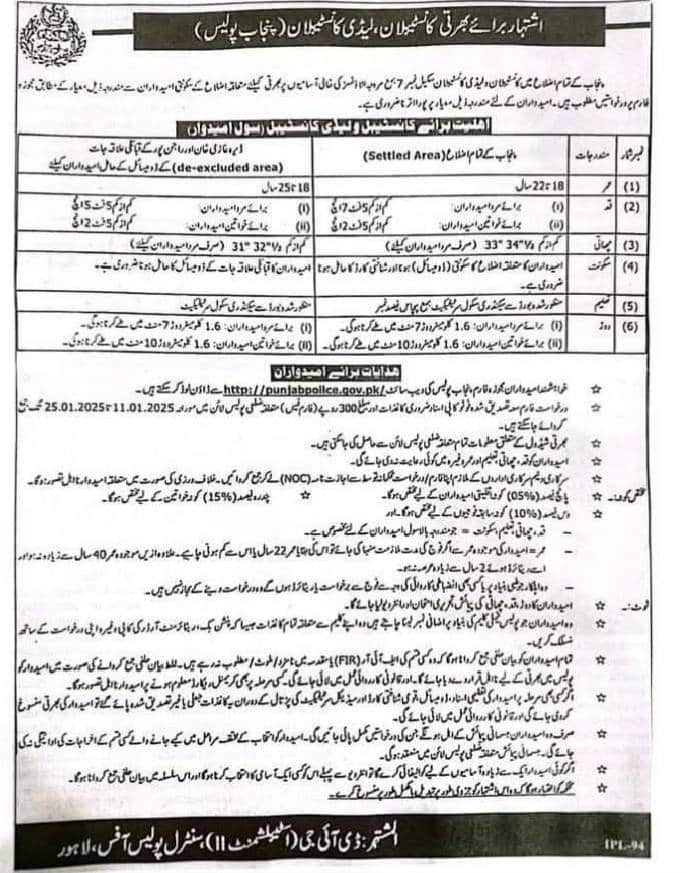 اشتہار برائے بھرتی کانسٹیبلان، لیڈی کانسٹیبلان (پنجاب پولیس)
پنجاب کے تمام اضلاع میں کانسٹیبلان ولیڈی کانسٹیبلان سکیل نمبر 7 بمع مروجہ الاؤنسز کی خالی آسامیوں پر بھرتی کیلئے متعلقہ اضلاع کے سکونتی امیدواران سے مندرجہ ذیل معیار کے مطابق مجوزہ
فارم پر درخواستیں مطلوب ہیں۔ امیدواران کے لئے مندرجہ ذیل معیار پر پورا اترنا ضروری ہے۔
اہلیت برائے کانسٹیبل ولیڈی کانسٹیبل (سول امیدوار)
نمبر شمار مندرجات پنجاب کے تمام اضلاع (Settled Area) ڈیرہ غازی خان اور راجن پور کے قبائلی علاقہ جات
(de-excluded area) کے ڈومیسائل کے حامل امیدواران کیلئے
(1) عمر 18 تا 22 سال 18 تا 25 سال
(2) قد (i) برائے مرد امیدواران: کم از کم 5 فٹ 7 انچ (i) برائے مرد امیدواران: کم از کم 5 فٹ 5 انچ
(ii) برائے خواتین امیدواران: کم از کم 5 فٹ 2 انچ (ii) برائے خواتین امیدواران: کم از کم 5 فٹ 2 انچ
(3) چھاتی کم از کم 33" 34½" (صرف مرد امیدواران کیلئے) کم از کم 31" 32½" (صرف مرد امیدواران کیلئے)
(4) سکونت امیدواران کا متعلقہ اضلاع کا سکونتی (ڈومیسائل) ہونا اور شناختی کارڈ کا حامل ہونا امیدواران کا قبائلی علاقہ جات کے ڈومیسائل کا حامل ہونا ضروری ہے۔
ضروری ہے۔
(5) تعلیم منظور شدہ بورڈ سے سیکنڈری سکول سرٹیفکیٹ بمع پچاس فیصد نمبر منظور شدہ بورڈ سے سیکنڈری سکول سرٹیفکیٹ
(6) دوڑ (i) برائے مرد امیدواران: 1.6 کلومیٹر دوڑ 7 منٹ میں طے کرنا ہوگی۔ (i) برائے مرد امیدواران: 1.6 کلومیٹر دوڑ 7 منٹ میں طے کرنا ہوگی۔
(ii) برائے خواتین امیدواران: 1.6 کلومیٹر دوڑ 10 منٹ میں طے کرنا ہوگی۔ (ii) برائے خواتین امیدواران: 1.6 کلومیٹر دوڑ 10 منٹ میں طے کرنا ہوگی۔
ہدایات برائے امیدواران
☆ خواہشمند امیدواران مجوزہ فارم پنجاب پولیس کی ویب سائٹ http://punjabpolice.gov.pk/ سے ڈاؤن لوڈ کر سکتے ہیں۔
☆ درخواست فارم معہ تصدیق شدہ فوٹو کاپی اسناد ضروری کاغذات اور مبلغ 300 روپے (فارم فیس) متعلقہ ضلعی پولیس لائن میں مورخہ 11.01.2025 تا 25.01.2025 تک جمع
کروائے جا سکتے ہیں۔
☆ بھرتی شیڈول کے متعلق معلومات تمام متعلقہ ضلعی پولیس لائن سے حاصل کی جا سکتی ہیں۔
☆ امیدواران کو قد، چھاتی، تعلیم اور عمر وغیرہ میں کوئی رعایت نہ دی جائے گی۔
☆ سرکاری و نیم سرکاری اداروں کے ملازم اپنا فارم/درخواست محکمانہ توسط سے اجازت نامہ (NOC) لے کر جمع کروائیں۔ خلاف ورزی کی صورت میں متعلقہ امیدوار نااہل تصور ہوگا۔
مختص کوٹہ:۔ ☆ پانچ فیصد (05%) کوٹہ اقلیتی امیدواران کے لیے مختص ہوگا۔ ☆ پندرہ فیصد (15%) کوٹہ خواتین کے لیے مختص ہوگا۔
☆ دس فیصد (10%) کوٹہ سابقہ فوجیوں کے لیے مختص ہوگا۔ اور
– قد، چھاتی، تعلیم، سکونت = جو مندرجہ بالا سول امیدواران کے لئے مخصوص ہے۔
– عمر = امیدوار کی موجودہ عمر سے اگر فوج کی مدت ملازمت منہا کی جائے تو اس کی بقایا عمر 22 سال یا اس سے کم ہونی چاہیے۔ علاوہ ازیں موجودہ عمر 40 سال سے زیادہ نہ ہو اور
اسے ریٹائرڈ ہوئے 2 سال سے زیادہ عرصہ نہ ہو۔
– وہ اہلکار جو طبی بنیاد پر یا کسی بھی انضباطی کاروائی کی وجہ سے فوج سے برخواست یا ریٹائرڈ ہوں گے وہ درخواست دینے کے مجاز نہیں ہیں۔
نوٹ:۔ ☆ امیدواران کا دوڑ، قد، چھاتی کی پیمائش، تحریری امتحان اور انٹرویو لیا جائے گا۔
☆ وہ امیدواران جو پولیس فیملی کلیم کی بنیاد پر اضافی نمبر لینا چاہتے ہیں وہ اپنے کلیم سے متعلقہ تمام کاغذات جیسا کہ پنشن بک، ریٹائرمنٹ آرڈر کی کاپی وغیرہ اپنی درخواست کے ساتھ
منسلک کریں۔
☆ تمام امیدواران کو بیان حلفی جمع کروانا ہوگا کہ وہ کسی قسم کی ایف آئی آر (FIR) یا مقدمہ میں نامزد/ملوث/مطلوب نہ رہے ہیں۔ غلط بیان حلفی جمع کروانے کی صورت میں امیدوار کو
پولیس میں بھرتی کے لیے نااہل قرار دے دیا جائے گا۔ اور قانونی کاروائی عمل میں لائی جائے گی۔ کسی مرحلہ پر بھی کریمنل ریکارڈ معلوم ہونے پر امیدوار نااہل تصور ہوگا۔
☆ اگر کسی بھی مرحلہ پر امیدوار کی تعلیمی اسناد، ڈومیسائل، قومی شناختی کارڈ اور میڈیکل سرٹیفکیٹ کی پڑتال کے دوران یہ کاغذات جعلی یا غیر تصدیق شدہ پائے گئے تو امیدوار کی بھرتی منسوخ
کر دی جائے گی اور قانونی کاروائی عمل میں لائی جائے گی۔
☆ صرف وہ امیدوار جسمانی پیمائش کے اہل ہونگے جن کی درخواستیں مکمل پائی جائیں گی۔ امیدوار کو انتخاب کے مختلف مراحل میں کیے جانے والے کسی قسم کے اخراجات کی ادائیگی نہ کی
جائے گی۔ جسمانی پیمائش متعلقہ ضلعی پولیس لائن میں منعقد ہوگی۔
☆ اگر کوئی امیدوار ایک سے زیادہ آسامیوں کے لیے کوالیفائی کرے گا تو انٹرویو سے پہلے اس کو کسی ایک آسامی کا انتخاب کرنا ہوگا اور اس سلسلہ میں بیان حلفی جمع کروانا ہوگا۔
☆ محکمہ کو اختیار ہوگا کہ وہ اس اشتہار کو جزوی طور پر تبدیل یا مکمل طور پر منسوخ کرے۔
المشتہر: ڈی آئی جی (اسٹیبلشمنٹ II)، سنٹرل پولیس آفس، لاہور
IPL-94